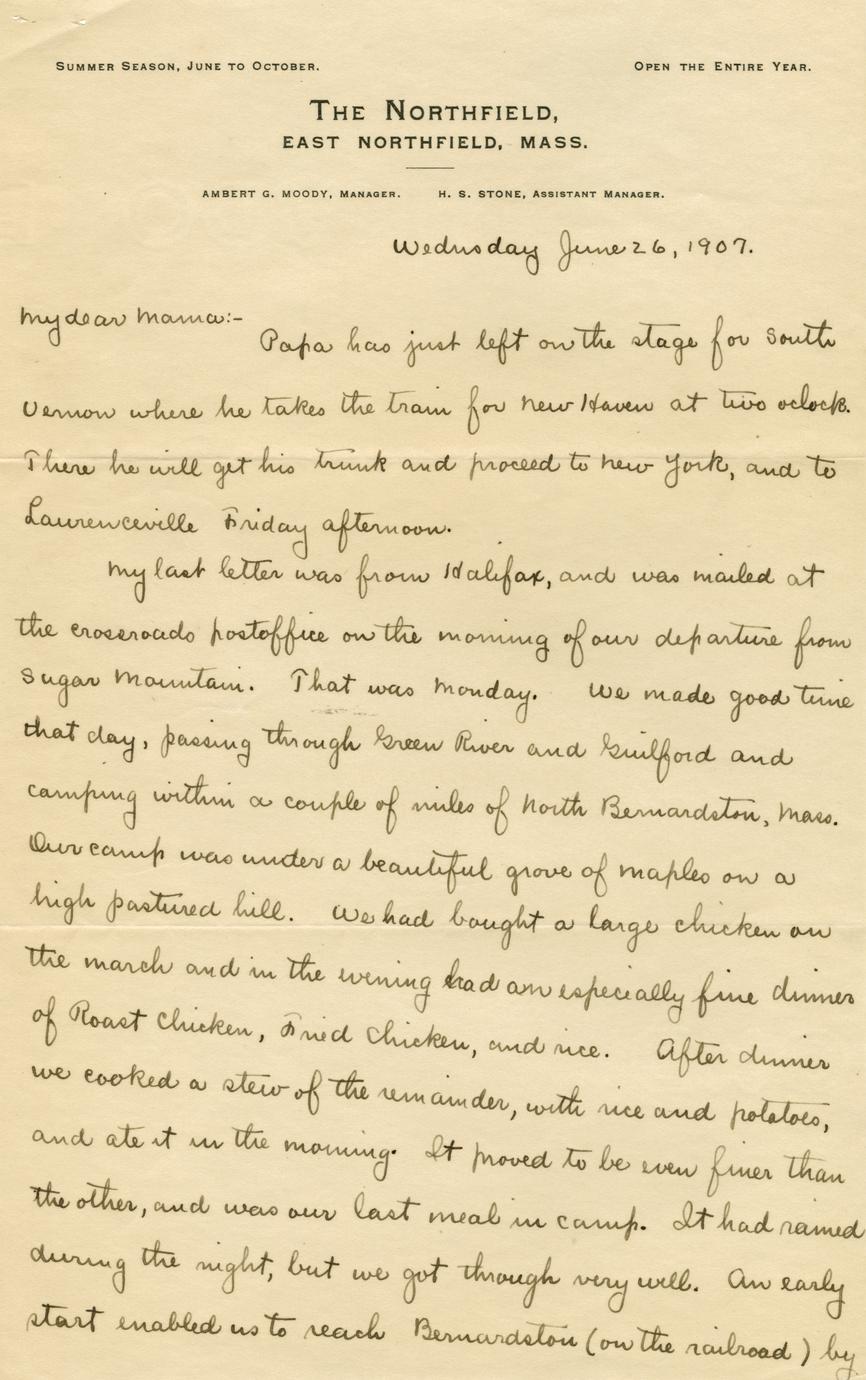 SUMMER SEASON, JUNE TO OCTOBER. OPEN THE ENTIRE YEAR.
THE NORTHFIELD,
EAST NORTHFIELD, MASS.
AMBERT G. MOODY, MANAGER. H. S. STONE, ASSISTANT MANAGER.
Wednsday June 26, 1907.
My dear Mama:-
Papa has just left on the stage for South
Vernon where he takes the train for New Haven at two oclock.
There he will get his trunk and proceed to New York, and to
Laurenceville Friday afternoon.
My last letter was from Halifax, and was mailed at
the crossroads postoffice on the morning of our departure from
Sugar Mountain. That was Monday. We made good time
that day, passing through Green River and Guilford and
camping within a couple of miles of North Bernardston, Mass.
Our camp was under a beautiful grove of maples on a
high pastured hill. We had bought a large chicken on
the march and in the evening had an especially fine dinner
of Roast Chicken, Fried Chicken, and rice. After dinner
we cooked a stew of the remainder, with rice and potatoes,
and ate it in the morning. It proved to be even finer than
the other, and was our last meal in camp. It had rained
during the night, but we got through very well. An early
start enabled us to reach Bernardston (on the railroad) by